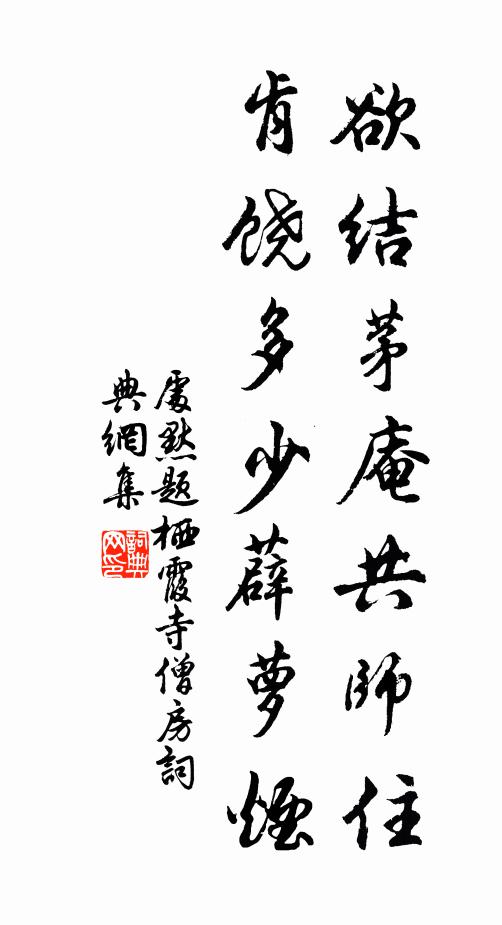 欲结茅庵共師住
肯饶多少薜萝煙
處默题栖霞寺僧房詞
典網集
詞典
网印